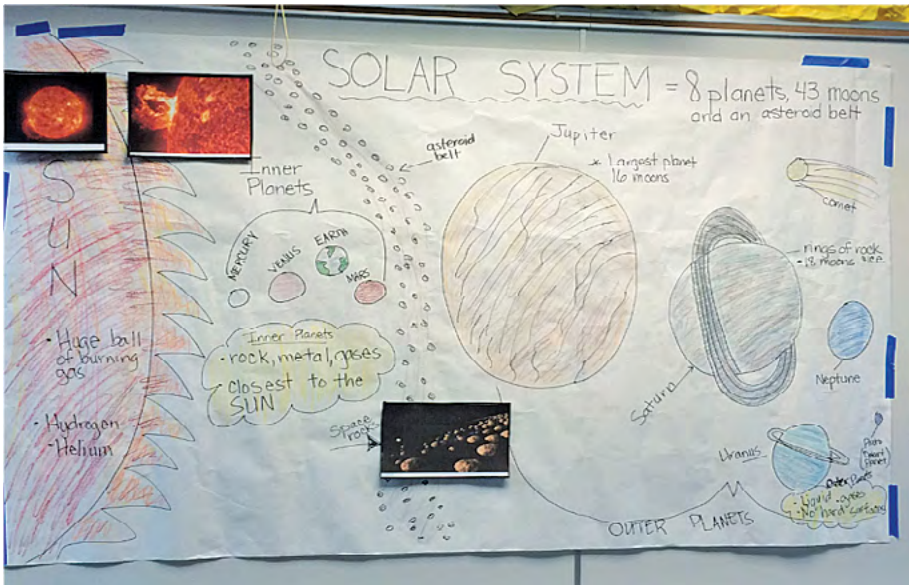 SOLAR SYSTEM = 8 planets, 43 moons
and an asteroid belt
SUN
• Huge ball
of burning
gas
• Hydrogen
• Helium
Inner
Planets
MERCURY
VENUS
EARTH
MARS
Inner Planets
• rock, metal, gases
closest to the
SUN
asteroid
belt
Space
rocks
Jupiter
* largest planet
16 moons
comet
rings of rock
- 18 moons ice
Saturn
Neptune
Uranus
Pluto
Dwarf
Planet
OUTER PLANETS
Outer Planets
- Liquid, gases
- No "hard" surfaces